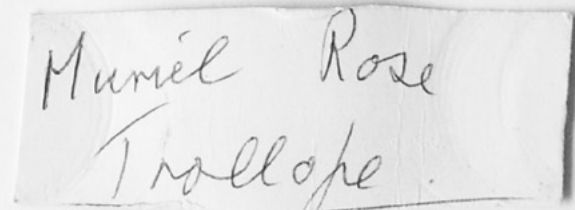 Muriel Rose
Trollope.